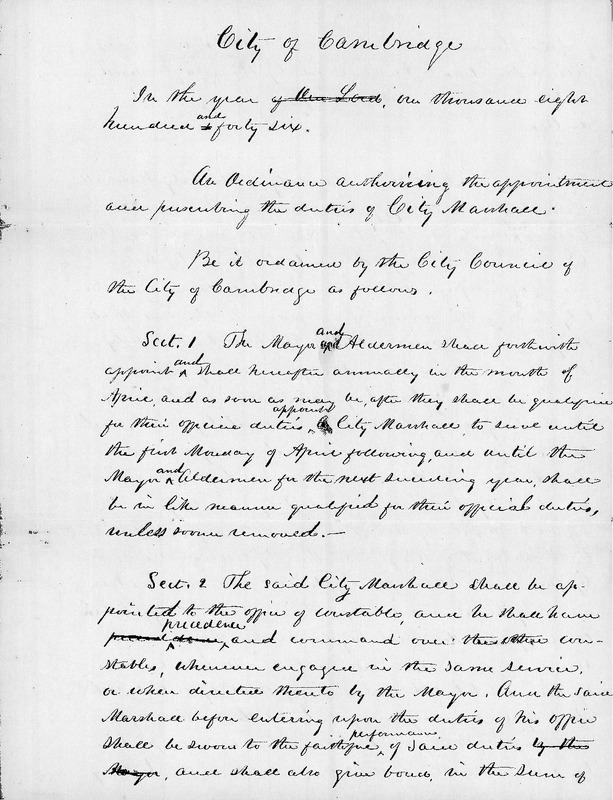 City of Cambridge
In the year of Our Lord, one thousand eight
hundred and forty six.
An Ordinance authorising the appointment
and prescribing the duties of City Marshall.
Be it ordained by the City Council of
the City of Cambridge as follows.
Sect. 1 The Mayor and Aldermen shall forthwith
appoint and shall hereafter annually in the month of
April, and as soon as may be, after they shall be qualified
for their official duties, appoint a City Marshall, to serve until
the first Monday of April following, and until the
Mayor and Aldermen for the next succeeding year, shall
be in like manner qualified for their official duties,
unless sooner removed.—
Sect. 2 The said City Marshall shall be ap-
pointed to the office of constable, and he shall have
precedence, and command over the other con-
stables, whenever engaged in the same service,
or when directed thereto by the Mayor. And the said
Marshall before entering upon the duties of his office
shall be sworn to the faithful performance of said duties by the
Mayor, and shall also give bond, in the sum of